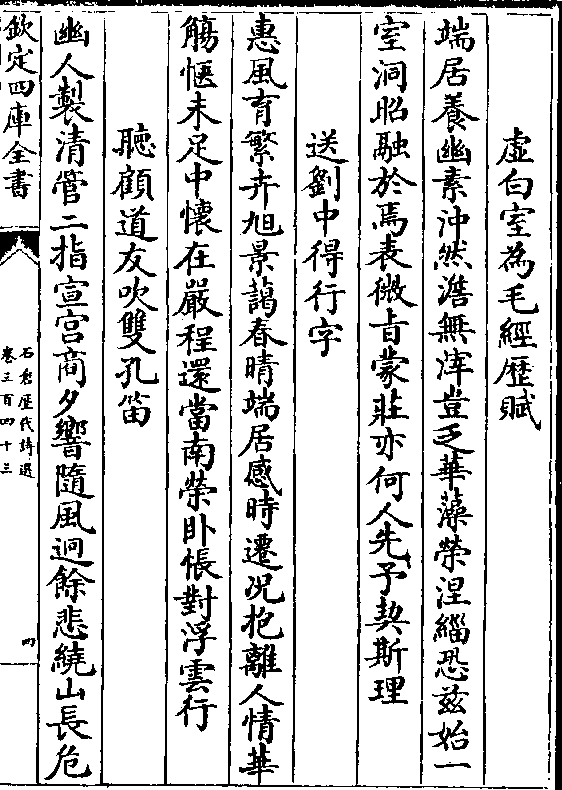 虛白室為毛經歴賦
端居養幽素沖然澹無滓豈乏華藻榮涅緇恐兹始一
室洞昭融於焉表微㫖蒙莊亦何人先予契斯理
送劉中得行字
惠風育繁卉旭景藹春晴端居感時遷况抱離人情華
觴愜未足中懷在嚴程還當南榮卧悵對浮雲行
聽顧道友吹雙孔笛
幽人製清管二指宣宫商夕響隨風迥餘悲繞山長危
欽定四庫全書
石倉歴代詩選
卷三百四十三
四